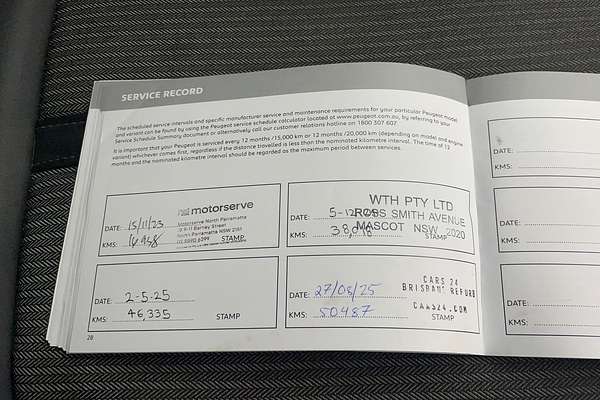 SERVICE RECORD
The scheduled service intervals and specific manufacturer service and maintenance requirements for your particular Peugeot model
and variant can be found by using the Peugeot service schedule calculator located at www.peugeot.com.au, by referring to your
Service Schedule Summary document or alternatively call our customer relations hotline on 1800 307 607.
It is important that your Peugeot is serviced every 12 months /15,000 km or 12 months /20,000 km (depending on model and engine
variant) whichever comes first, regardless if the distance travelled is less than the nominated kilometre interval. The time of 12
months and the nominated kilometre interval should be regarded as the maximum period between services.
motorserve
Motorserve North Parramatta
Barney Street
North Parramatta NSW 2151
DATE: 15/11/23
KMS:
STAMP
WTH PTY LTD
ROSS SMITH AVENUE
MASCOT NSW 2020
DATE:
KMS:
STAMP
DATE: 2-5-25
KMS: 46,335
STAMP
DATE: 27/08/25
KMS: 50487
CARS 24
BRISBANE REFURB
CARS24.COM
STAMP
28
DATE:
KMS:
DATE:
KMS:
DATE:
KMS: